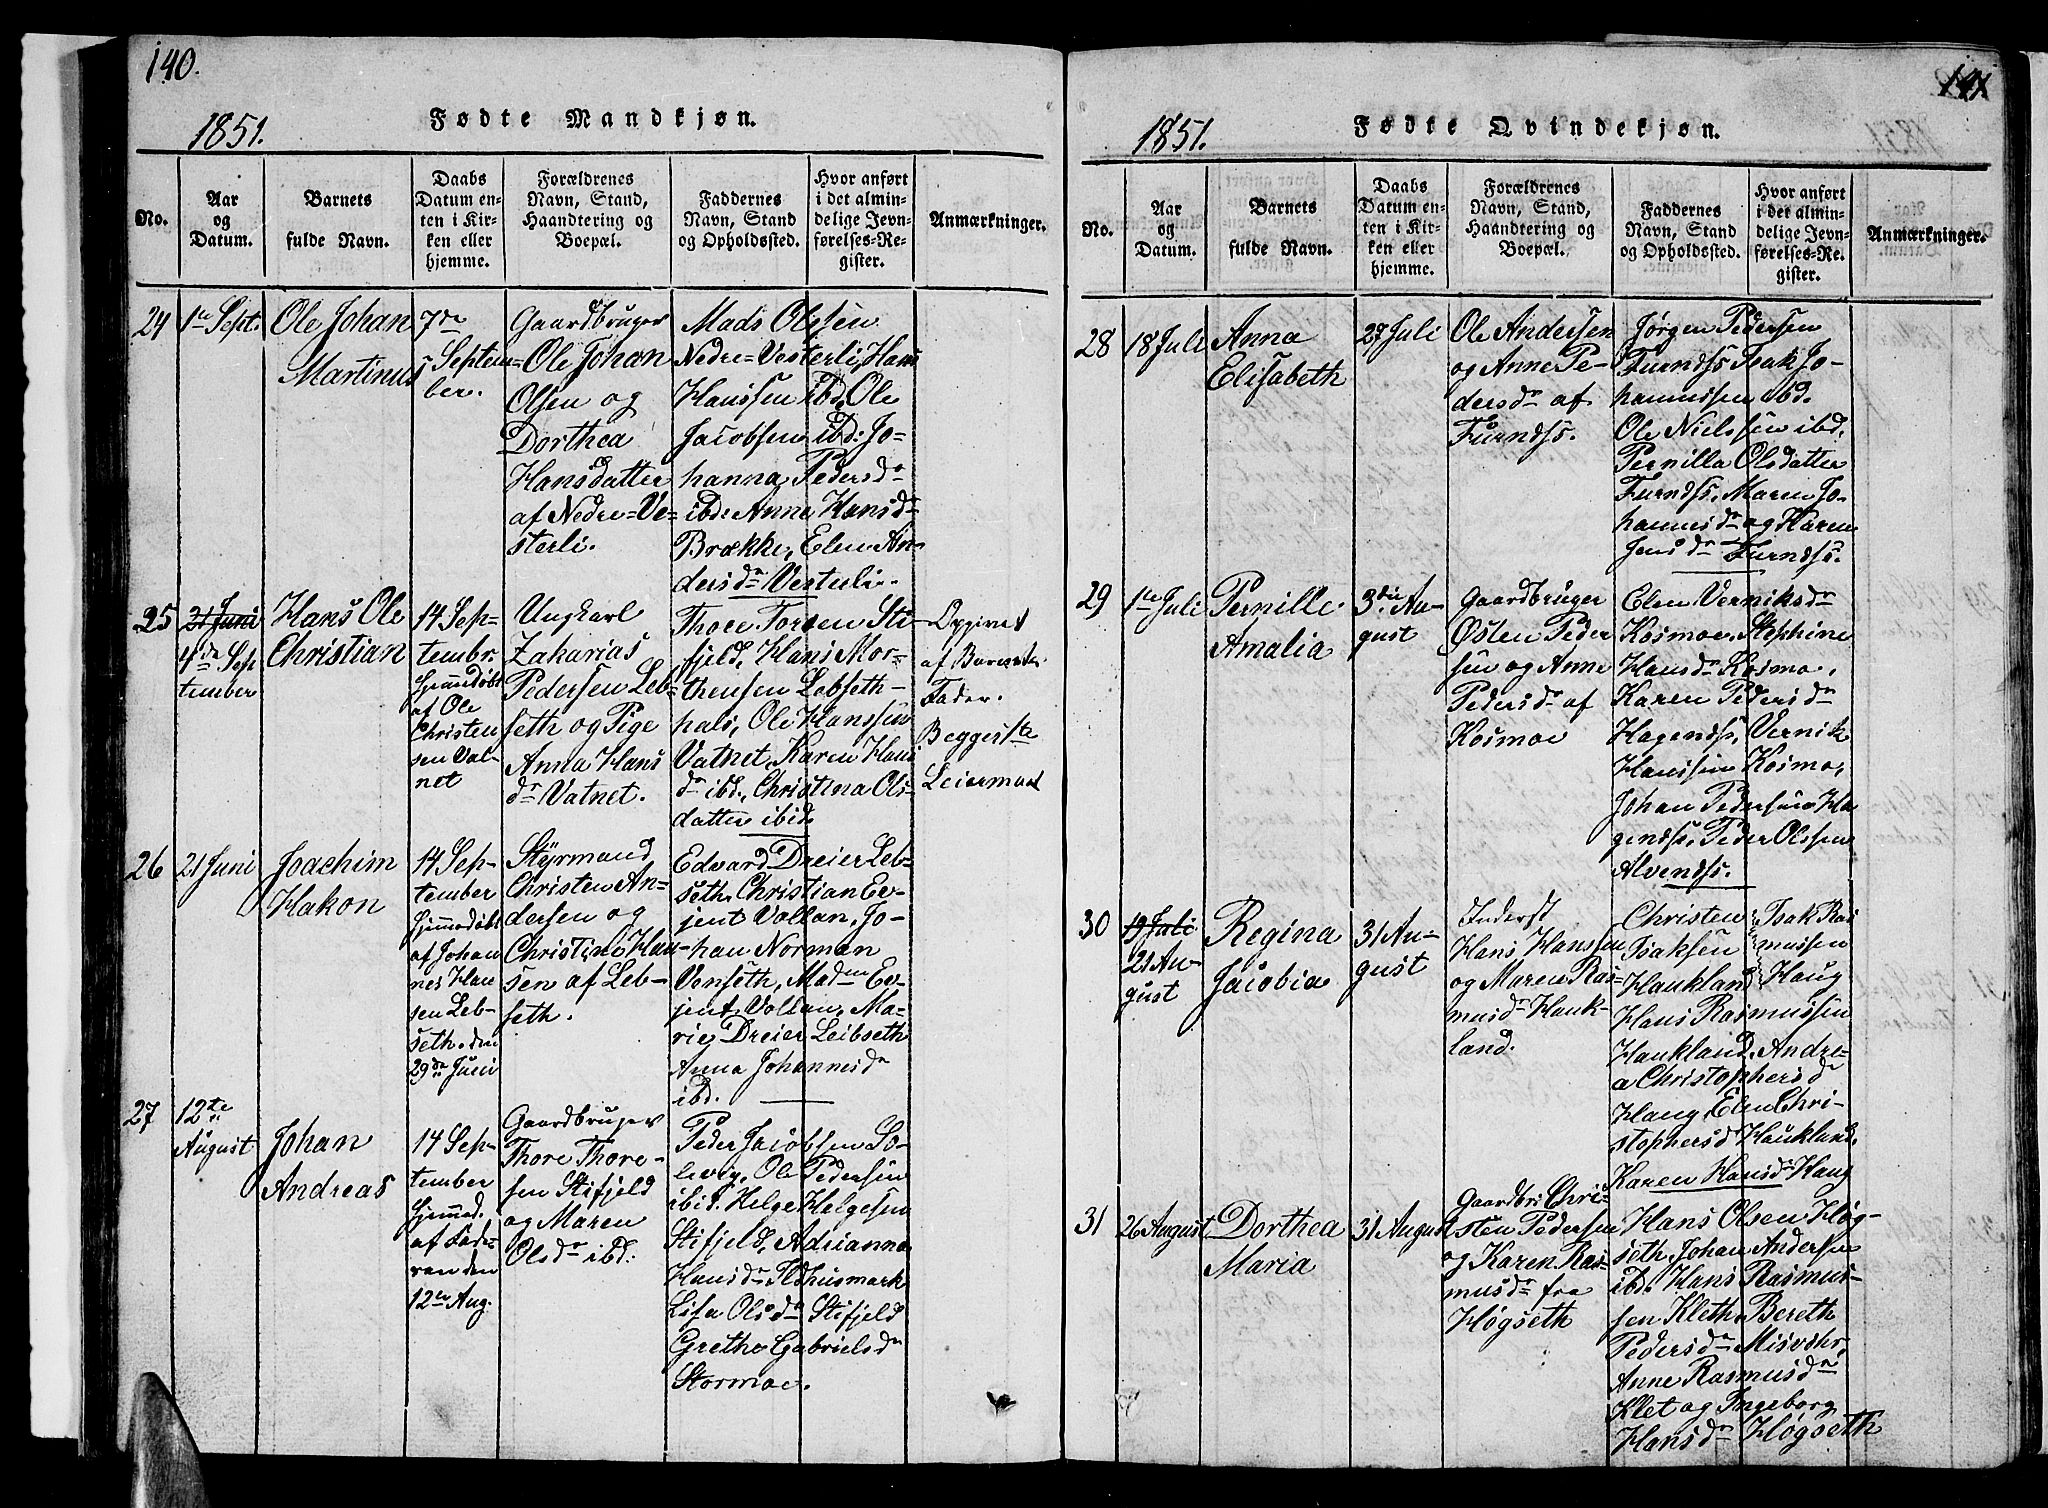 140.
1851.
Fødte Mandkjøn.
No.
Aar
og
Datum.
Barnets
fulde Navn.
Daabs
Datum en-
ten i Kir-
ken eller
hjemme.
Forældrenes
Navn, Stand,
Haandtering og
Boepæl.
Faddernes
Navn, Stand
og Opholdssted.
Hvor anført
i det almin-
delige Jevn-
førelses-Re-
gister.
Anmærkninger.
24
1te Sept.
Ole Johan
Martinus
7de
Septem-
ber.
Gaardbruger
Ole Johan
Olsen og
Dorthea
Hansdatter
af Nedre-Ve-
sterli.
Mads Olssen
Nedre-Vesterli, Hans
Hanssen ibd, Ole
Jacobsen ibd: Jo-
hanna Pedersdr
ibd: Anne Hansdr
Brække, Elen An-
dersdr Vesterli.
25
21 Juni
4de Sep
tember
Hans Ole
Christian
14 Sep-
tembr.
hjemmedøbt
af Ole
Christen
sen Val-
net
Ungkarl
Zakarias
Pedersen Leb-
seth og Pige
Anna Hans
dr Vatnet.
Thore Torsen Sti-
fjeld, Hans Mor-
thensen Lebseth-
hals, Ole Hanssen
Vatnet, Karen Hans
dr ibd., Christina Ols-
datter ibid.
Opgivet
af Barnets
Fader.
Begges 1ste
Leiermaal
26
21 Juni
Joachim
Hakon
14 Sep-
tember
hjemmedøbt
af Johan
nes Han
sen Leb-
seth. den
29de Juni
Styrmand
Christen An-
dersen og
Christine Han-
sen af Leb-
seth.
Edvard Dreier Leb-
seth, Christian Ev-
jent Vollan, Jo-
han Norman
Venseth, Madm Ev-
jent Vollan, Ma-
rie Dreier Leibseth
Anna Johannesdr
ibd.
27
12te
August
Johan
Andreas
14 Sep-
tember
hjemmed.
af Fade-
ren den
12te Aug.
Gaardbruger
Thore Thore-
sen Stifjeld
og Maren
Olsdr ibd.
Peder Jacobsen So-
levig, Ole Pedersen
ibid. Helge Helgesen
Stifjeld, Adrianna
Hansdr Ildhusmark
Lisa Olsdr Stifjeld
Grethe Gabrielsdr
Stormoe.
141
1851.
Fødte Qvindekjøn.
No.
Aar
og
Datum.
Barnets
fulde Navn.
Daabs
Datum en-
ten i Kir-
ken eller
hjemme.
Forældrenes
Navn, Stand,
Haandtering og
Boepæl.
Faddernes
Navn, Stand
og Opholdssted.
Hvor anført
i det almin-
delige Jevn-
førelses-Re-
gister.
Anmærkninger.
28
18 Juli
Anna
Elisabeth
27 Juli
Ole Andersen
og Anne Pe-
dersdr af
Furndss.
Jørgen Pedersen
Furndss Isak Jo-
hannissen ibd.
Ole Nielssen ibd.
Pernilla Olsdatter
Furndss, Maren Jo-
hannisdr og Karen
Jensdr Furndss.
29
1te Juli
Pernille
Amalia
3die Au-
gust
Gaardbruger
Østen Peder
sen og Anne
Pedersdr af
Kosmoe
Elen Verniksdr
Kosmoe, Stephine
Hansdr Kosmoe,
Karen Pedersdr
Hagendss, Vernik
Hanssen Kosmo,
Johan Pedersen Ha
gendss, Peder Olssen
Alvendss.
30
19 Juli
21 Au-
gust
Regina
Jacobia
31 Au-
gust
Inderst
Hans Hanssen
og Maren Ras-
musdr Hauk-
land.
Christen Isak Ras
Isaksen mussen
Haukland Haug
Hans Rasmussen
Haukland, Andre-
a Christophersdr
Haug, Elen Chri-
stophersd Haukland,
Karen Hansdr Haug
31
26 August
Dorthea
Maria
31 August
Gaardbr: Chri-
sten Pedersen
og Karen Ras-
musdr fra
Høgseth
Hans Olsen Høg-
seth, Johan Andersen
ibd. Hans Rasmus-
sen Kleth, Bereth
Pedersdr Misvær,
Anne Rasmusdr
Klet og Ingeborg
Hansdr Høgseth